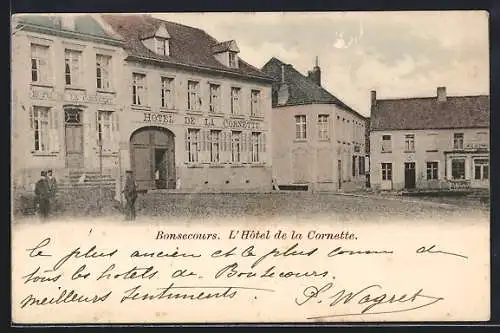 HOTEL DE LA CORNETTE
Bonsecours. L'Hôtel de la Cornette.
Le plus ancien et le plus connu de
tous les hôtels de Bonsecours.
meilleurs sentiments. P. Wagret